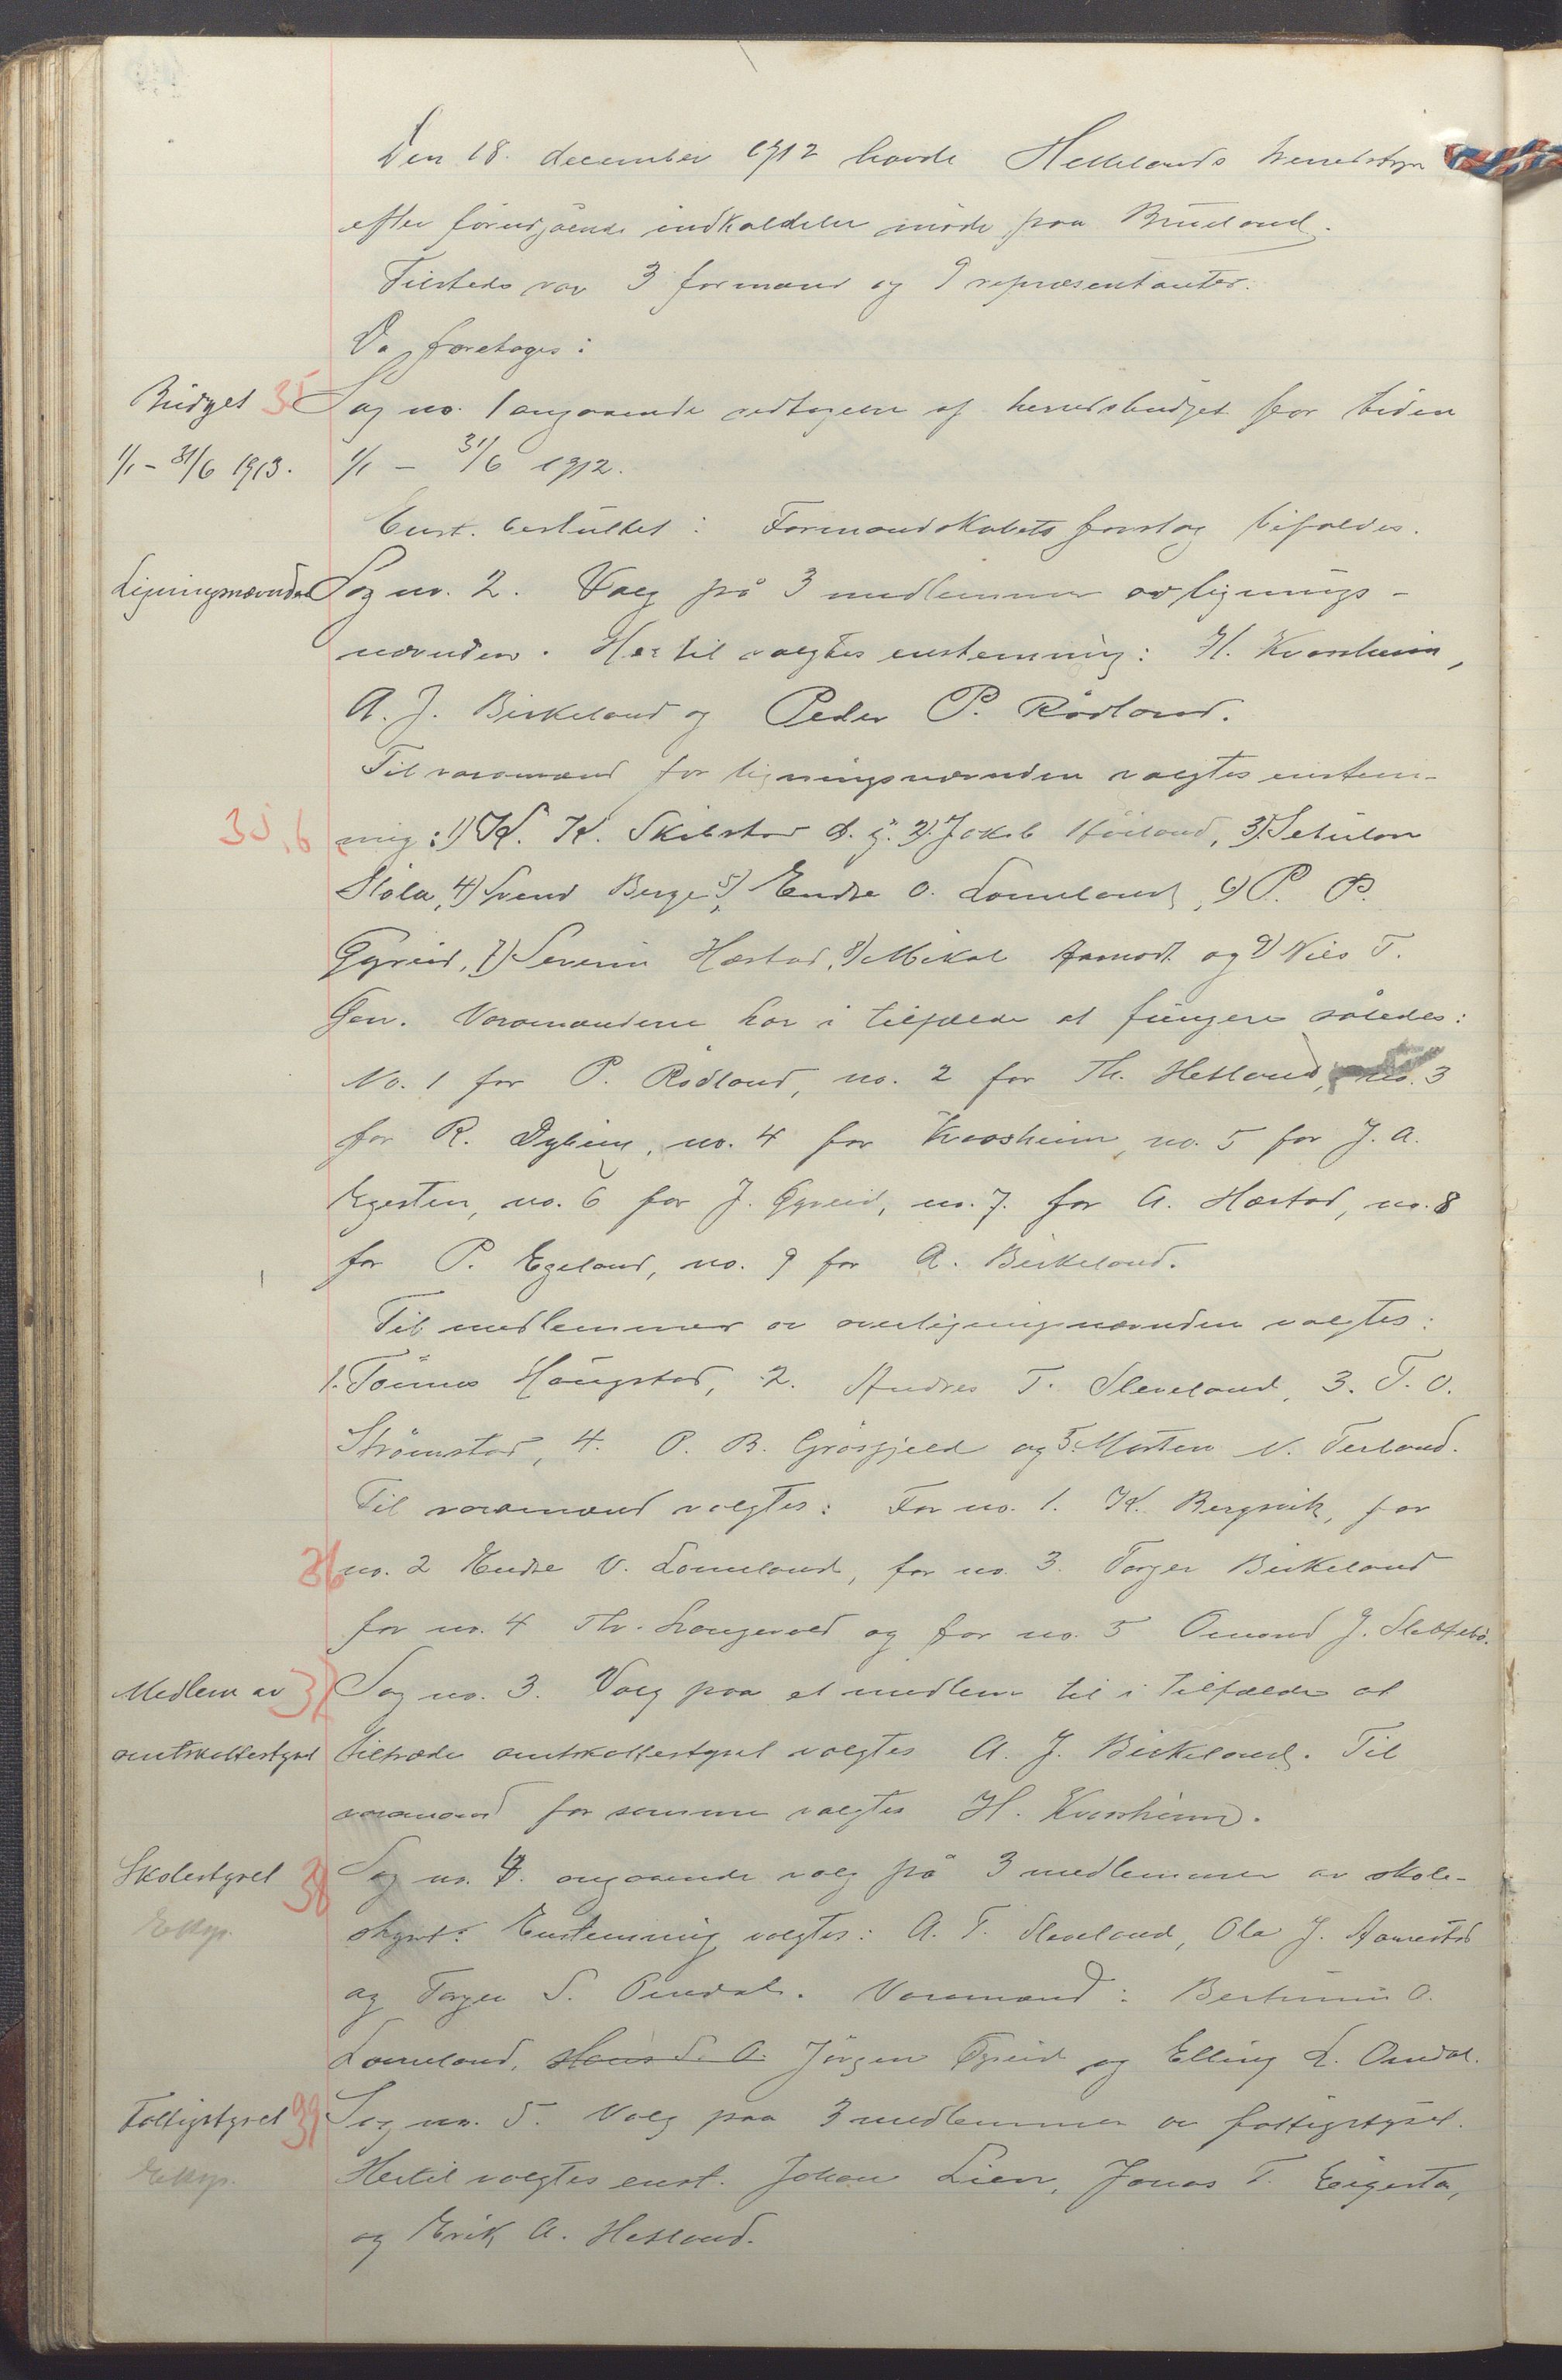 Den 18. december 1912 havde Hellelands herredstyre
efter forudgående indkaldelse møde paa Brueland.
Tilstede var 3 formænd og 9 repræsentanter.
Da foretoges:
Budget 35 Sag no. 1 angaaende vedtagelse af herredsbudget for tiden
1/1 – 31/6 1913. 1/1 – 31/6 1912.
Enst. besluttet: Formandskabets forslag bifaldes.
Ligningsnævnden Sag no. 2. Valg på 3 medlemmer av lignings-
nævnden. Hertil valgtes enstemmig: H. Kvassheim,
A. J. Birkeland og Peder P. Rödland.
Til varamænd for ligningsnævnden valgtes enstem-
35,6 mig: 1) K. K. Skibstad d. y. 2) Jakob Höiland, 3) Setulon
Slola, 4) Svend Berge 5) Endre O. Lomeland, 6) P. P.
Gyreid, 7) Severin Hæstad, 8) Mikal Aamodt og 9) Nils T.
Gon. Varamændene har i tilfælde at fungere således:
No. 1 for P. Rödland, no. 2 for Th. Hetland, no. 3
for R. Dybing, no. 4 for Kvassheim, no. 5 for J. A.
Egesten, no. 6 for J. Gyreid, no. 7. for A. Hæstad, no. 8
for P. Egeland, no. 9 for A. Birkeland.
Til medlemmer av overligningsnævnden valgtes:
1. Tönnes Haugstad, 2. Andres T. Sleveland, 3. T. O.
Strömstad, 4. P. B. Grösfjeld og 5. Morten N. Terland.
Til varamænd valgtes: For no. 1. K. Bergsvik, for
36 no. 2 Endre O. Lomeland, for no. 3. Torger Birkeland
for no. 4 Th. Langevold og for no. 5 Omund J. Slettebö.
Medlem av 37 Sag no. 3. Valg paa et medlem til i tilfælde at
amtskattestyret tiltræde amtskattestyret valgtes A. J. Birkeland. Til
varamand for samme valgtes H. Kvassheim.
Skolestyret 38 Sag no. 4. angaaende valg på 3 medlemmer av skole-
Eksp. styret. Enstemmig valgtes: A. T. Sleveland, Ola J. Aamodt
og Torger S. Omdal. Varamænd: Bertinius O.
Lomeland, Hans d. A. Jörgen Gyreid og Elling L. Omdal.
Fattigstyret 39 Sag no. 5. Valg paa 3 medlemmer av fattigstyret.
Eksp. Hertil valgtes enst. Johan Lien, Jonas T. Eigesta,
og Erik A. Hetland.